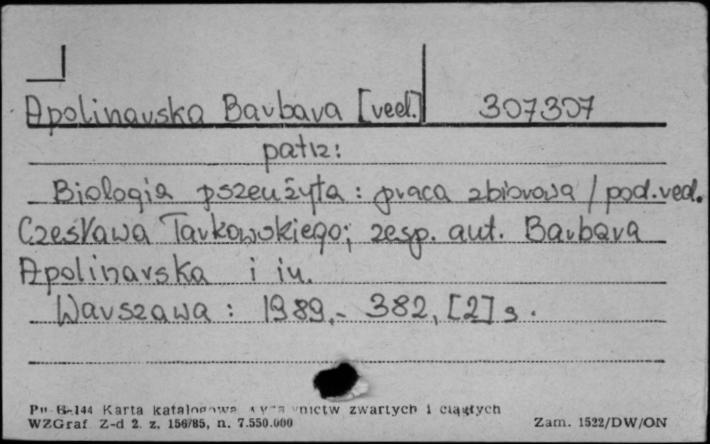 Apolinarska Barbara [red.] 307307
patrz:
Biologia pszenżyta : praca zbiorowa / pod. red.
Czesława Tarkowskiego; zesp. aut. Barbara
Apolinarska i in.
Warszawa : 1989.- 382, [2] s.
Pu-B-144 Karta katalogowa wydawnictw zwartych i ciągłych
WZGraf. Z-d 2. z. 156/85, n. 7.550.000 Zam. 1522/DW/ON